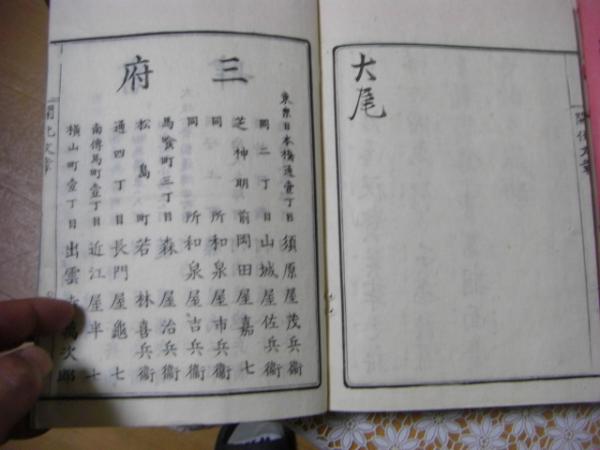 大尾
三府
東京日本橋通壹丁目 須原屋茂兵衞
同二丁目 山城屋佐兵衞
芝神明前 岡田屋嘉七
同所 和泉屋市兵衞
同所 和泉屋吉兵衞
馬喰町三丁目 森屋治兵衞
松島町 若林喜兵衞
通四丁目 長門屋龜七
南傳馬町壹丁目 近江屋半七
橫山町壹丁目 出雲 次郎
開化文章
開化文章